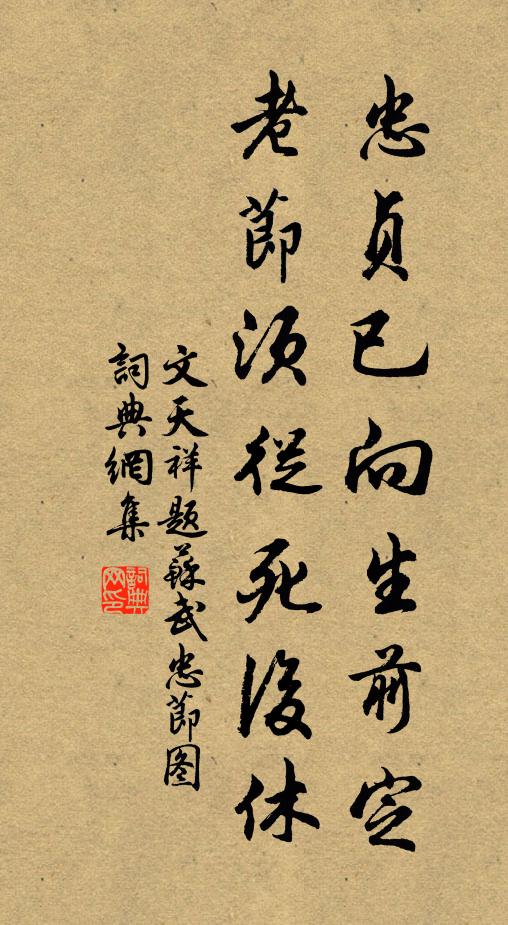 忠貞已向生前定
老節須從死後休
文天祥題蘇武忠節圖
詞典網集
詞典網印